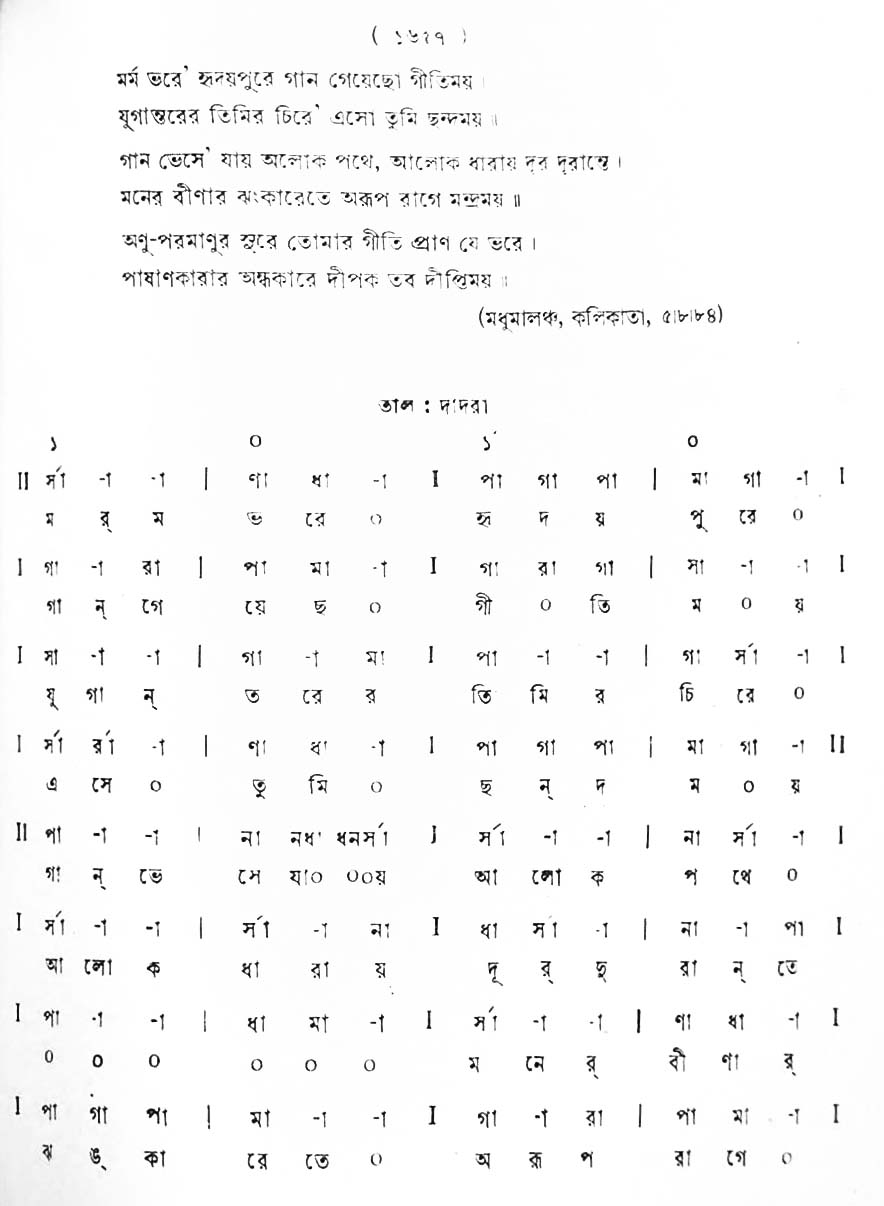 ( ১৬২৭ )
মর্ম ভরে' হৃদয়পুরে গান গেয়েছো গীতিময় ।
যুগান্তরের তিমির চিরে' এসো তুমি ছন্দময় ॥
গান ভেসে' যায় অলোক পথে, আলোক ধারায় দূর দূরান্তে ।
মনের বীণার ঝংকারেতে অরূপ রাগে মন্দ্রময় ॥
অণু-পরমাণুর সুরে তোমার গীতি প্রাণ যে ভরে ।
পাষাণকারার অন্ধকারে দীপক তব দীপ্তিময় ॥
(মধুমালঞ্চ, কলিকাতা, ৫।৮।৮৪)
তাল : দাদরা
১ ০ ১´ ০
II র্সা -া -া | ণা ধা -া I পা গা পা | মা গা -া I
ম র্ ম ভ রে ০ হৃ দ য় পু রে ০
I গা -া রা | পা মা -া I গা রা গা | সা -া -া I
গা ন্ গে য়ে ছ ০ গী ০ তি ম ০ য়
I সা -া -া | গা -া মা I পা -া -া | গা র্সা -া I
যু গা ন্ ত রে র তি মি র চি রে ০
I র্সা র্রা -া | ণা ধা -া I পা গা পা | মা গা -া II
এ সে ০ তু মি ০ ছ ন্ দ ম ০ য়
II পা -া -া | না নধা ধনর্সা I র্সা -া -া | না র্সা -া I
গা ন্ ভে সে যা০ ০০য় আ লো ক প থে ০
I র্সা -া -া | র্সা -া না I ধা র্সা -া | না -া পা I
আ লো ক ধা রা য় দূ র্ দূ রা ন্ তে
I পা -া -া | ধা মা -া I র্সা -া -া | ণা ধা -া I
০ ০ ০ ০ ০ ০ ম নে র্ বী ণা র্
I পা গা পা | মা -া -া I গা -া রা | পা মা -া I
ঝ ঙ্ কা রে তে ০ অ রূ প রা গে ০